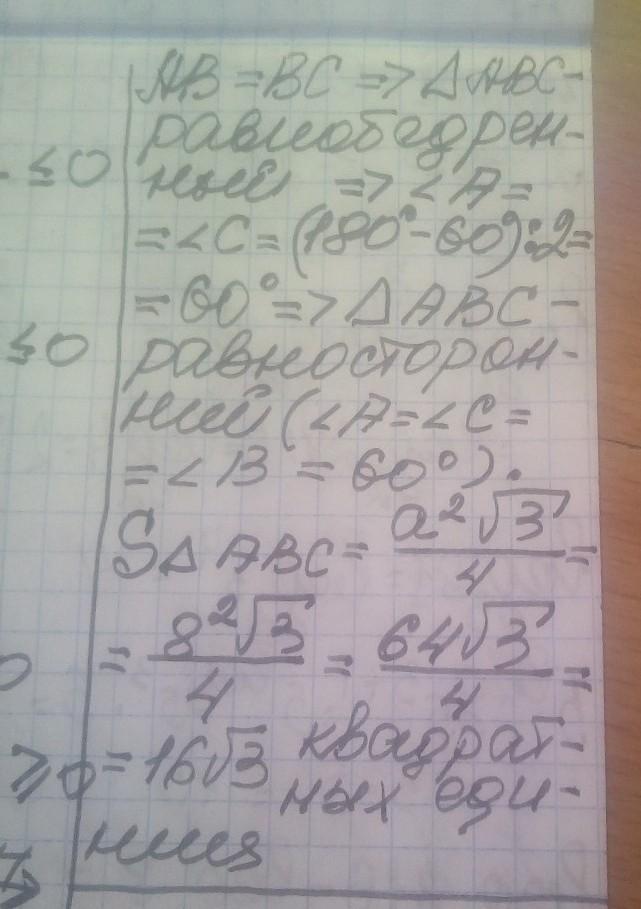 AB = BC => △ABC-
равнобедрен-
≤0
ный => ∠A =
= ∠C = (180°-60°):2=
= 60° => △ABC -
≤0
равносторон-
ний (∠A = ∠C =
= ∠B = 60°).
S△ABC = a²√3/4 =
= 8²√3/4 = 64√3/4 =
0
= 16√3 квадрат-
≥0
ных еди-
ниц